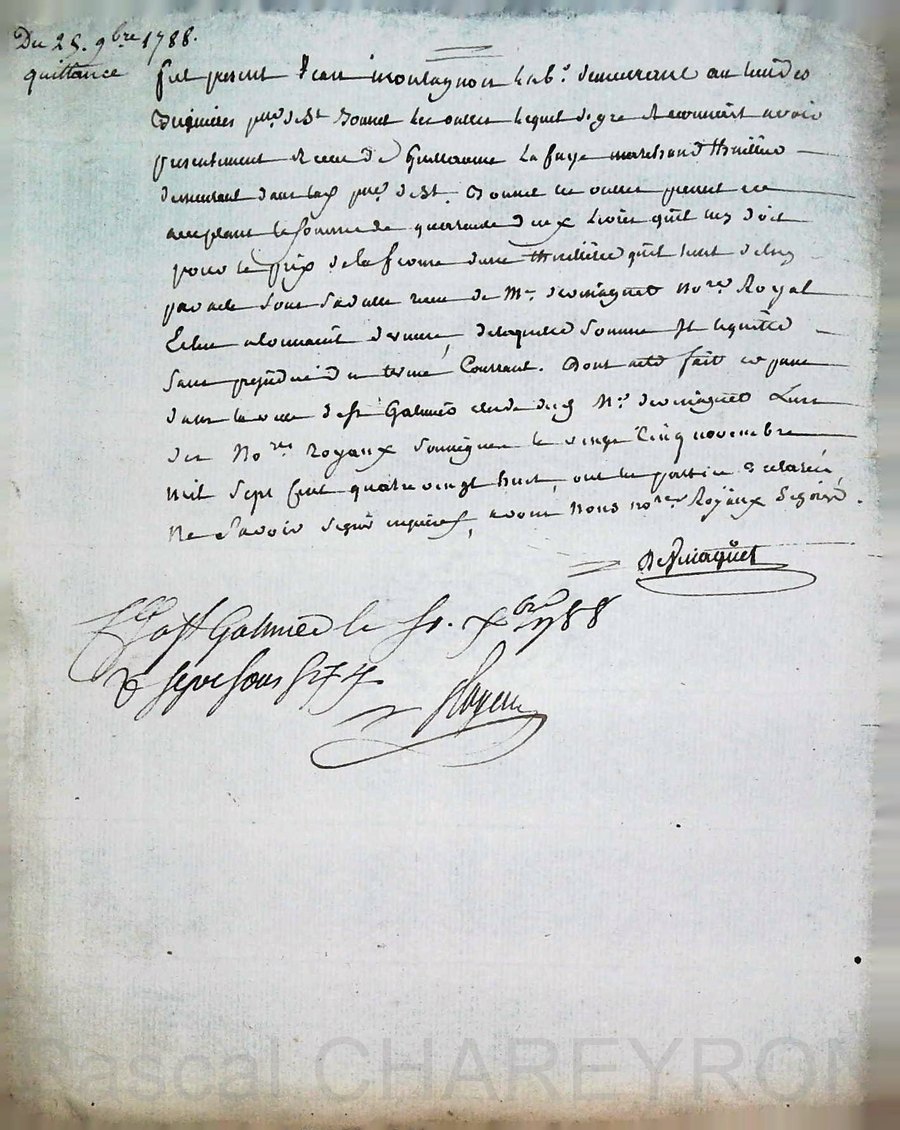 Du 25. 9bre 1788.
quittance
fut present Jean montagnon hab.t demeurant au lieu des
parr.e de St Bonnet les oulles lequel de gré Reconnoit avoir
presentement Receu de Guillaume Lafaye marchand thuillier
demeurant dans lad parr.e de St. Bonnet les oulles present et
acceptant la somme de quarante deux Livres qu'il luy doit
pour le prix de la ferme d'une thuilliere qu'il tient de luy
par acte sous sa datte receu de Mr. desmaguet No.re Royal
Echu a la derniere, de laquelle Somme il le quitte
sans prejudice du terme Courrant. Dont acte fait et passé
dans la ville de St Galmier etude dud Mr. desmaguet L'un
des No.res royaux soussignes le vingt Cinq novembre
mil Sept Cent quatre vingt huit, ont les parties declaré
Ne Savoir signer enquises, avons Nous no.res Royaux Signé.
Desmaguet
Clé a St Galmier le 8bre 1788
R sept sous